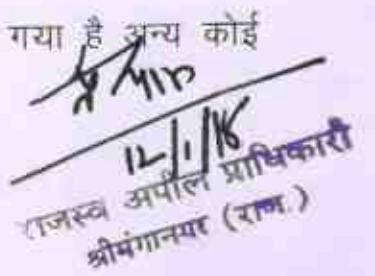 गया है अन्य कोई
12/1/18
राजस्व अपील प्राधिकारी
श्रीगंगानगर (राज.)